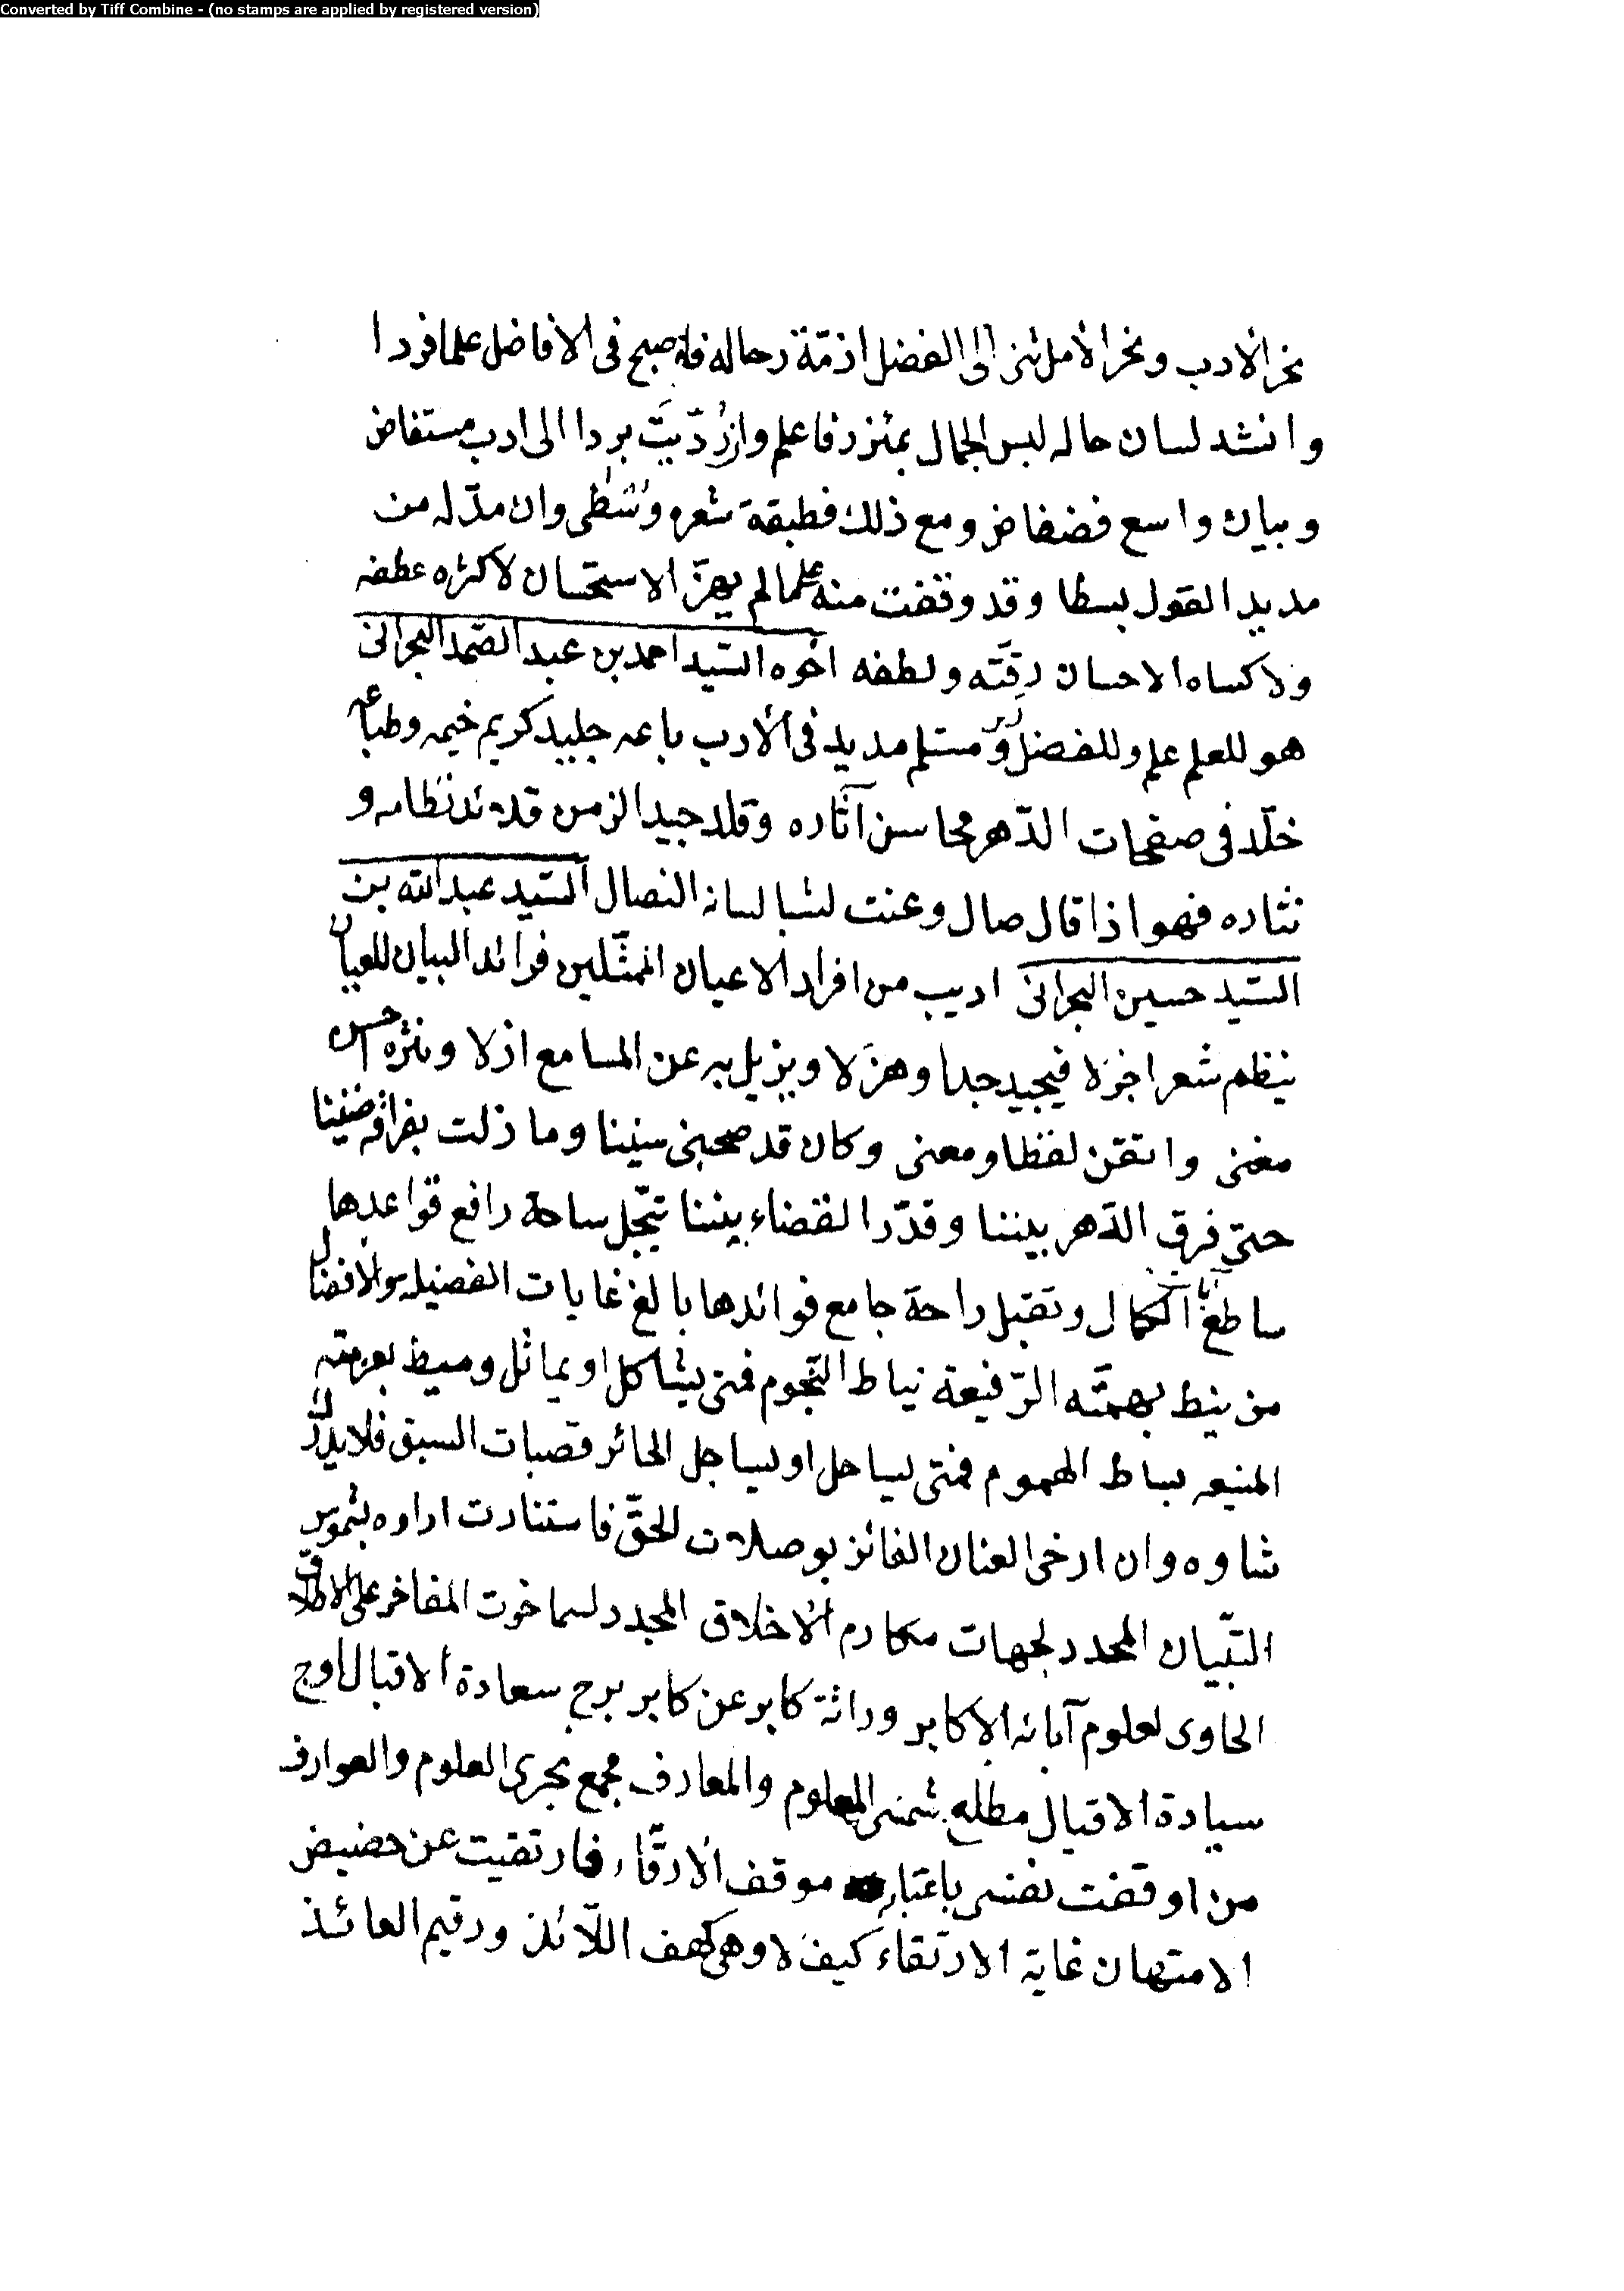 Converted by Tiff Combine - (no stamps are applied by registered version)
نحر الأدب ونحر الأمل ثنى إلى الفضل ازمّة رحاله فاصبح فى الافاضل علما فردا
وانشد لسان حاله ليس الجمال بمئزر فاعلم وان رُدّيتَ بردا الى ادب مستفاض
وبيان واسع فضفاض ومع ذلك فطبقة شعره وُسْطى وان مدّ له من
مديد القول بسطا وقد وقفت منه على ما لم يهزّ الاستحسان لاكثره عطفه
ولا كساه الاحسان رقّته ولطفه اخوه السّيد احمد بن عبد الصّمد البحرانى
هو للعلم علم وللفضل ركن مستلم مديد فى الأدب باعه جليد كريم خيمه وطباعه
خلّد فى صفحات الدّهر محاسن آثاره وقلد جيد الزمن قلائد نظامه و
نثاره فهو اذا قال صال وعنت لشبا لسانه النصال السّيد عبد الله بن
السّيد حسين البحرانى اديب من افراد الاعيان الممثّلين فرائد البيان للعيان
ينظم شعرا جزلا فيجيد جدا وهزلا ويزيل به عن المسامع ازلا ونثره احسن
مغنى واتقن لفظا ومعنى وكان قد صحبنى سنينا وما زلت بفراقه ضنينا
حتى فرق الدّهر بيننا وقدّر القضاء بيننا تبجّل ساحة رافع قواعدها
ساطع الكمال وتقبل راحة جامع فوائدها بالغ غايات الفضيلة والافضال
من ينط بهمّته الرّفيعة نياط النّجوم فمتى يشاكل او يماثل وميط بعزمته
المنيعه بساط الهموم فمتى يساحل او يساجل الحائز قصبات السبق فلا يدرك
شاوه وان ارخى العنان الفائز بوصلات الحقّ فاستنارت اراوه بشموس
التّبيان المحدد لجهات مكارم الأخلاق المجدد لسما خوت المفاخر على الاطلاق
الحاوى لعلوم آبائه الاكابر وراثة كابر عن كابر برج سعادة الاقبال اوج
سيادة الاقيال مطلع شمسى المعلوم والمعارف مجمع بحرى العلوم والعوارف
من اوقفت نفسى باعتابه موقف الأرقّاء فارتقيت عن حضيض
الامتهان غاية الارتقاء كيف لا وهى كهف اللّائذ ورقيم العائذ